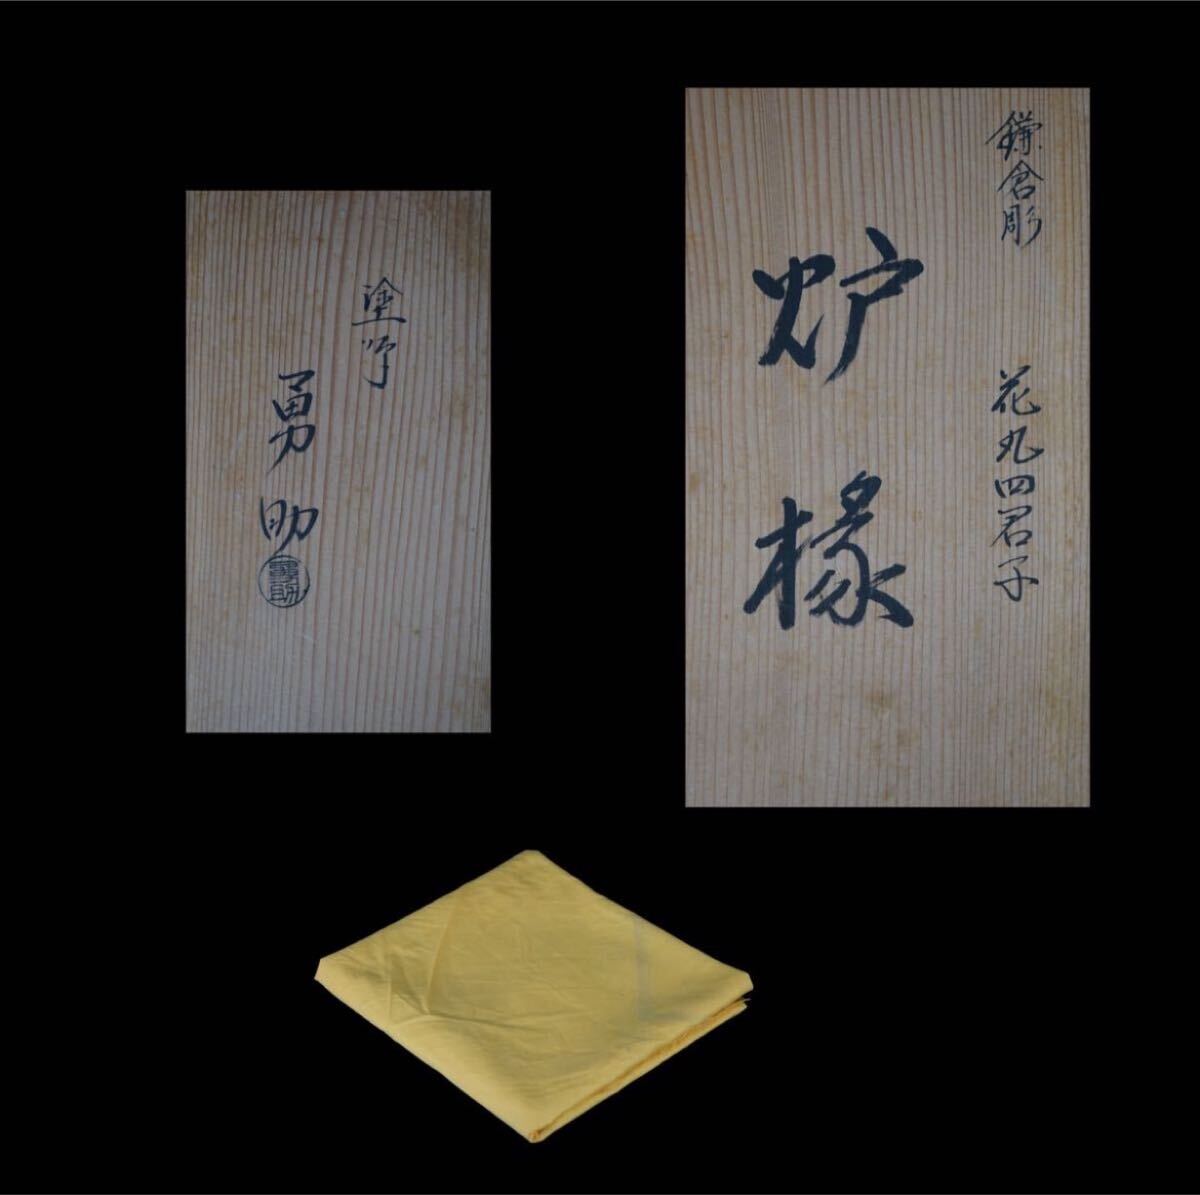 鎌倉彫 花丸四君子
炉椽
塗師
勇助
勇助